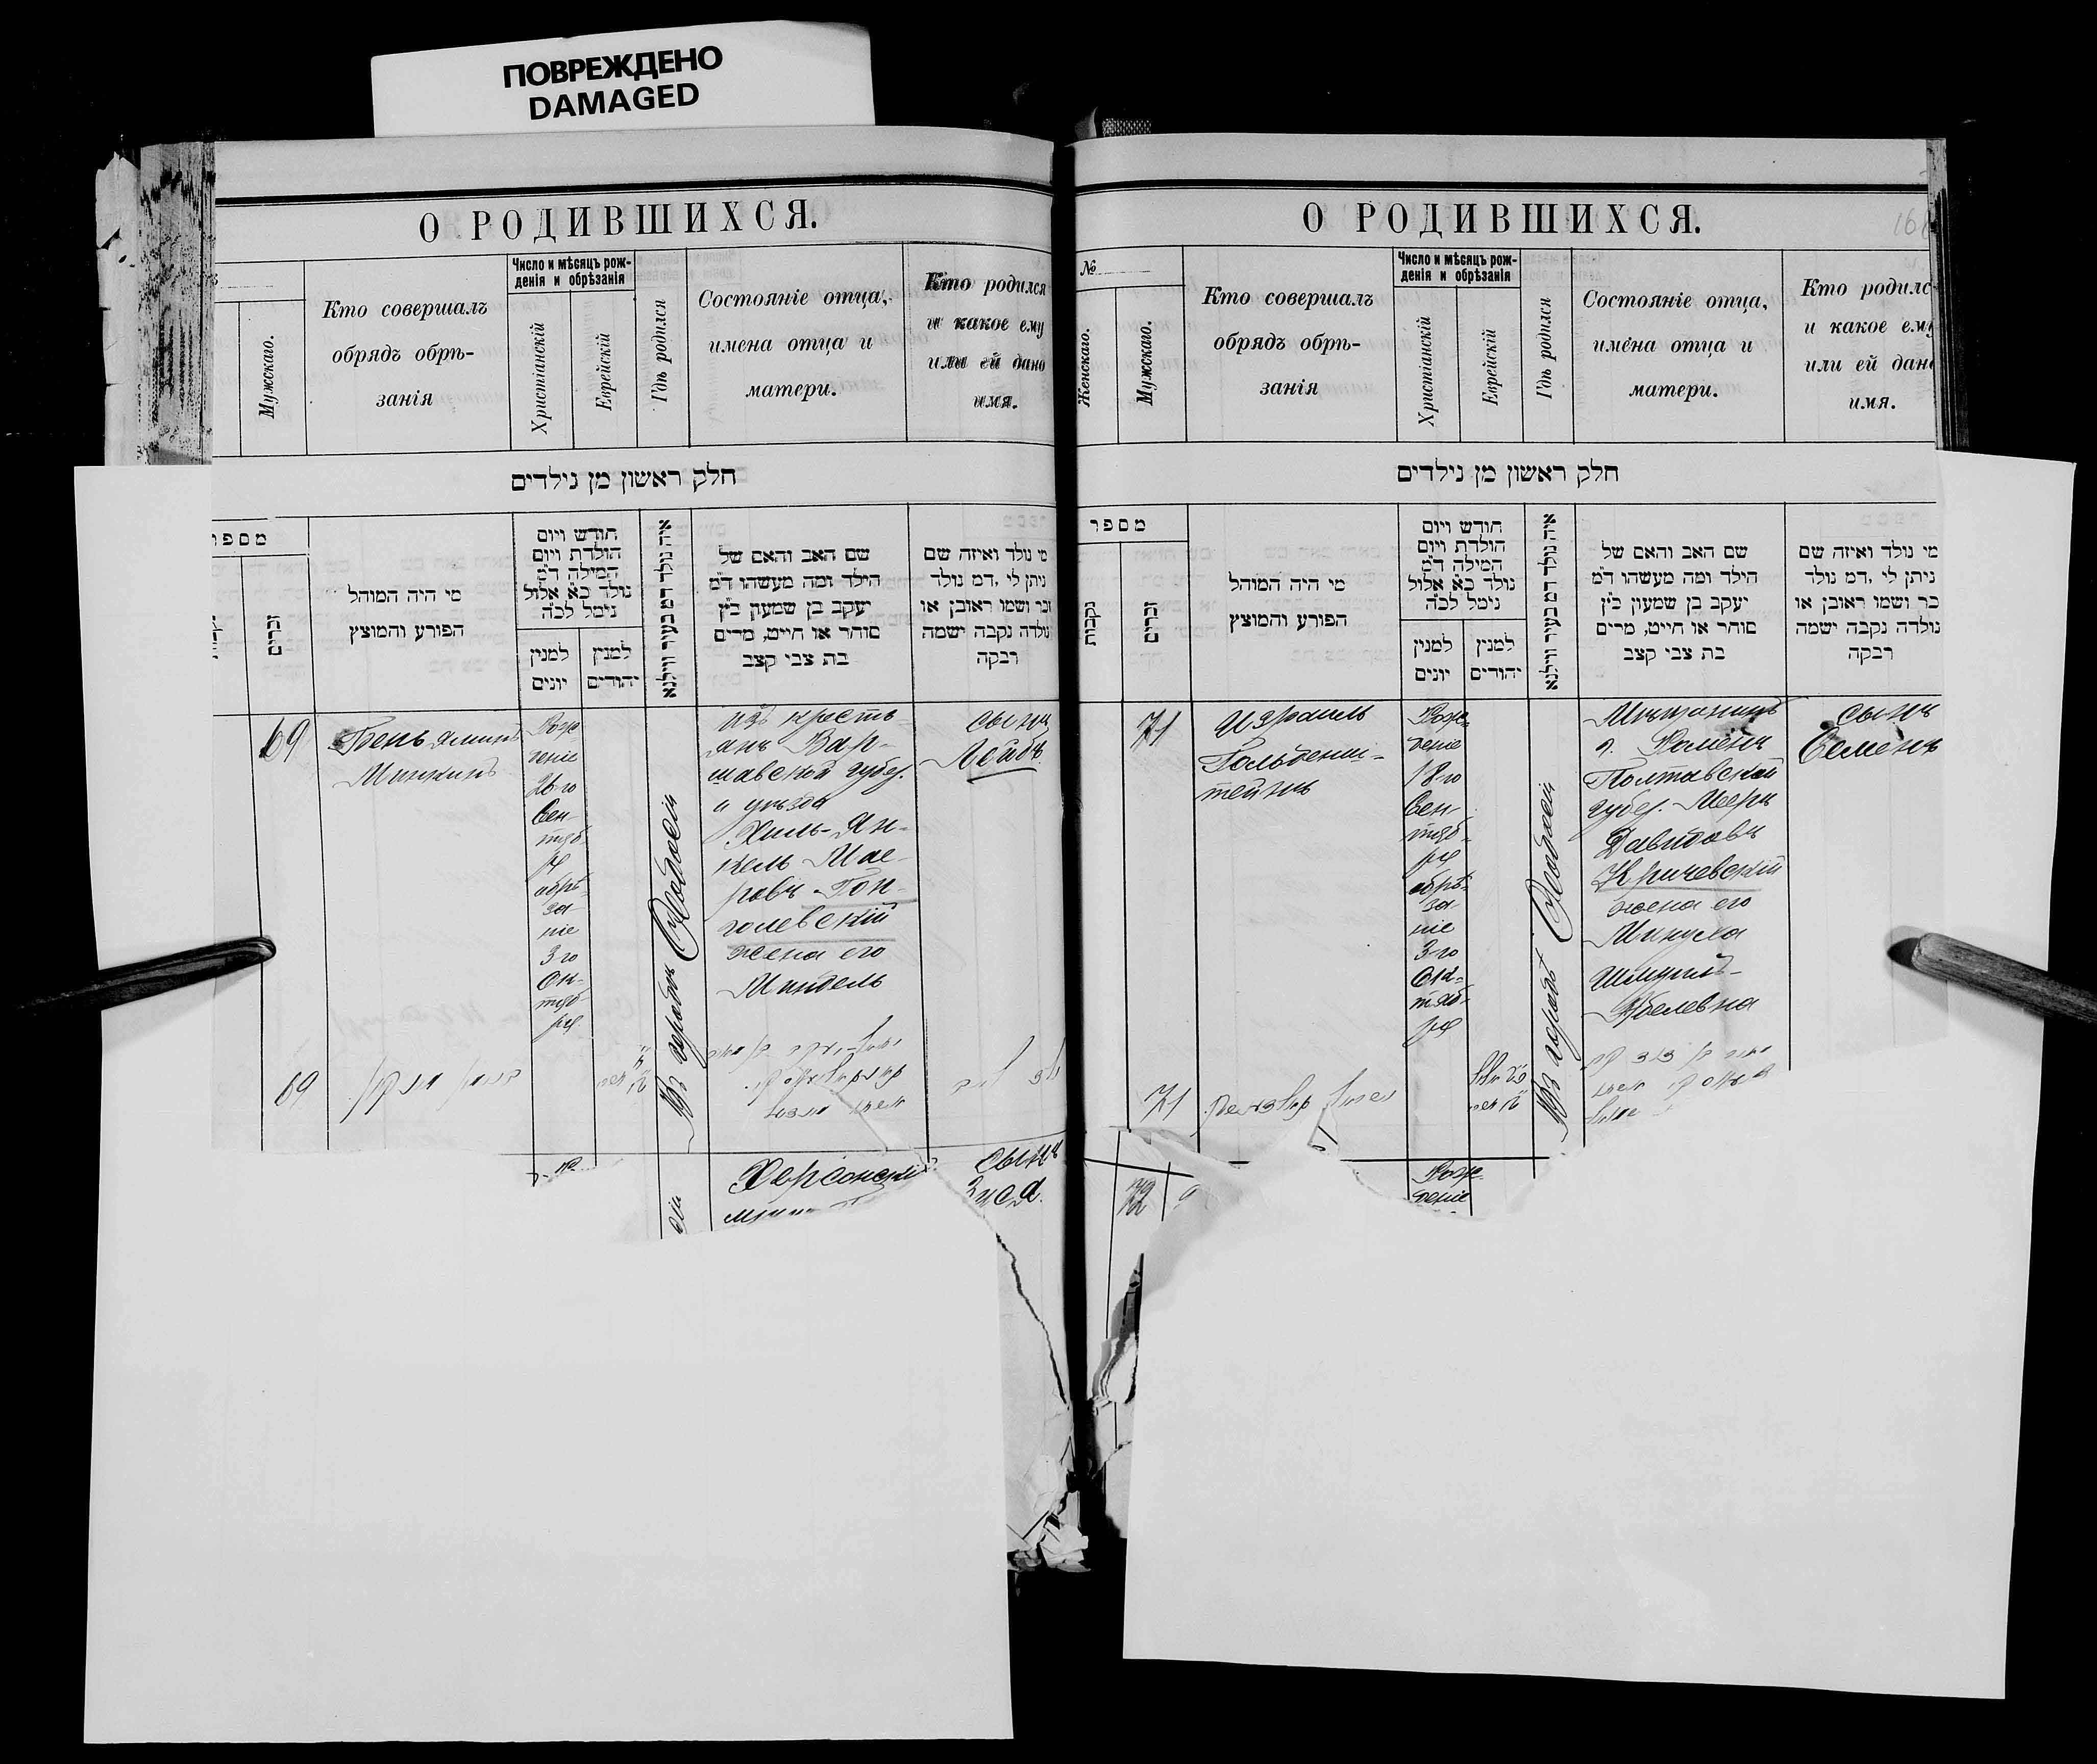 ПОВРЕЖДЕНО
DAMAGED
О РОДИВШИХСЯ.
Мужскаго.
Кто совершалъ
обрядъ обрѣ-
занія
Число и мѣсяцъ рож-
денія и обрѣзанія
Христіанскій
Еврейскій
Гдѣ родился
Состояніе отца,
имена отца и
матери.
Кто родился
и какое ему
или ей дано
имя.
חלק ראשון מן נילדים
זכרים
מי היה המוהל
הפורע והמוצץ
חודש ויום
הולדת ויום
המילה ד"מ
נולד כ"א אלול
נימל לכ"ה
למנין
יונים
למנין
יהודים
איה נולד דמ בעיר ווילנא
שם האב והאם של
הילד ומה מעשהו ד"מ
יעקב בן שמעון כ"ץ
סוהר או חייט, מרים
בת צבי קצב
מי נולד ואיזה שם
ניתן לי, דמ נולד
זכר ושמו ראובן או
נולדה נקבה ישמה
רבקה
69
Беньяминъ
Минкинъ
Рож
деніе
26-го
Сен-
тяб-
ря
обрѣ-
за-
ніе
3-го
Ок-
тяб-
ря
Въ городѣ Одессѣ
изъ кресть-
янъ Вар-
шавской губер.
и уѣзда
Хиль-Ян-
кель Мае-
ровъ Гон-
голевскій
жена его
Миндель
сынъ
Лейбъ
69
Херсонскій
сынъ
О РОДИВШИХСЯ.
161
№
Женскаго.
Мужскаго.
Кто совершалъ
обрядъ обрѣ-
занія
Число и мѣсяцъ рож-
денія и обрѣзанія
Христіанскій
Еврейскій
Гдѣ родился
Состояніе отца,
имена отца и
матери.
Кто родилс
и какое ему
или ей дано
имя.
חלק ראשון מן נילדים
מספר
נקבות
זכרים
מי היה המוהל
הפורע והמוצץ
חודש ויום
הולדת ויום
המילה ד"מ
נולד כ"א אלול
נימל לכ"ה
למנין
יונים
למנין
יהודים
איה נולד דמ בעיר ווילנא
שם האב והאם של
הילד ומה מעשהו ד"מ
יעקב בן שמעון כ"ץ
סוהר או חייט, מרים
בת צבי קצב
מי נולד ואיזה שם
ניתן לי, דמ נולד
זכר ושמו ראובן או
נולדה נקבה ישמה
רבקה
71
Израиль
Гольденш-
тейнъ
Рож-
деніе
18-го
Сен-
тяб-
ря
обрѣ-
за-
ніе
3-го
Ок-
тяб-
ря
Въ городѣ Одессѣ
Мѣщанинъ
г. Роменъ
Полтавской
губер. Мееръ
Давидовъ
Кричевскій
жена его
сынъ
Семенъ
71
72
Рож-
деніе